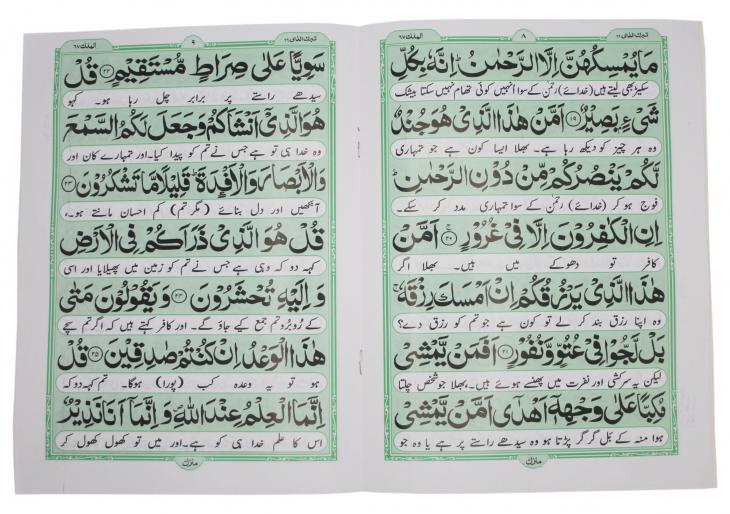 تبرك الذی ٢٩
٨
الملك ٦٧
مَا يُمْسِكُهُنَّ اِلَّا الرَّحْمٰنُ ؕ اِنَّهٗ بِكُلِّ
سکیڑ بھی لیتے ہیں (خدائے) رحمٰن کے سوا انہیں کوئی تھام نہیں سکتا بیشک
شَیْءٍۭ بَصِيْرٌ ﴿١٩﴾ اَمَّنْ هٰذَا الَّذِیْ هُوَ جُنْدٌ
وہ ہر چیز کو دیکھ رہا ہے۔ بھلا ایسا کون ہے جو تمہاری
لَّكُمْ يَنْصُرُكُمْ مِّنْ دُوْنِ الرَّحْمٰنِ ؕ
فوج ہو کر (خدائے) رحمٰن کے سوا تمہاری مدد کر سکے۔
اِنِ الْكٰفِرُوْنَ اِلَّا فِیْ غُرُوْرٍ ﴿٢٠﴾ اَمَّنْ
کافر تو دھوکے میں ہیں۔ بھلا اگر
هٰذَا الَّذِیْ يَرْزُقُكُمْ اِنْ اَمْسَكَ رِزْقَهٗ ۚ
وہ اپنا رزق بند کر لے تو کون ہے جو تم کو رزق دے؟
بَلْ لَّجُّوْا فِیْ عُتُوٍّ وَّنُفُوْرٍ ﴿٢١﴾ اَفَمَنْ يَّمْشِیْ
لیکن یہ سرکشی اور نفرت میں پھنسے ہوئے ہیں۔ بھلا جو شخص چلتا
مُكِبًّا عَلٰی وَجْهِهٖۤ اَهْدٰۤی اَمَّنْ يَّمْشِیْ
ہوا منہ کے بَل گر گر پڑتا ہو وہ سیدھے راستے پر ہے یا وہ جو
منزل
تبرك الذی ٢٩
٩
الملك ٦٧
سَوِيًّا عَلٰی صِرَاطٍ مُّسْتَقِيْمٍ ﴿٢٢﴾ قُلْ
سیدھے راستے پر برابر چل رہا ہو۔ کہو
هُوَ الَّذِیْۤ اَنْشَاَكُمْ وَجَعَلَ لَكُمُ السَّمْعَ
وہ خدا ہی تو ہے جس نے تم کو پیدا کیا۔ اور تمہارے کان اور
وَالْاَبْصَارَ وَالْاَفْـِٕدَةَ ؕ قَلِيْلًا مَّا تَشْكُرُوْنَ ﴿٢٣﴾
آنکھیں اور دل بنائے (مگر تم) کم احسان مانتے ہو۔
قُلْ هُوَ الَّذِیْ ذَرَاَكُمْ فِی الْاَرْضِ
کہہ دو کہ وہی ہے جس نے تم کو زمین میں پھیلایا اور اسی
وَاِلَيْهِ تُحْشَرُوْنَ ﴿٢٤﴾ وَيَقُوْلُوْنَ مَتٰی
کے رُوبرُو تم جمع کیے جاؤ گے۔ اور کافر کہتے ہیں کہ اگر تم سچے
هٰذَا الْوَعْدُ اِنْ كُنْتُمْ صٰدِقِيْنَ ﴿٢٥﴾ قُلْ
ہو تو یہ وعدہ کب (پورا) ہوگا۔ تم کہہ دو کہ
اِنَّمَا الْعِلْمُ عِنْدَ اللّٰهِ ۪ وَاِنَّمَاۤ اَنَا نَذِيْرٌ
اس کا علم خدا ہی کو ہے۔ اور میں تو کھول کھول کر
منزل